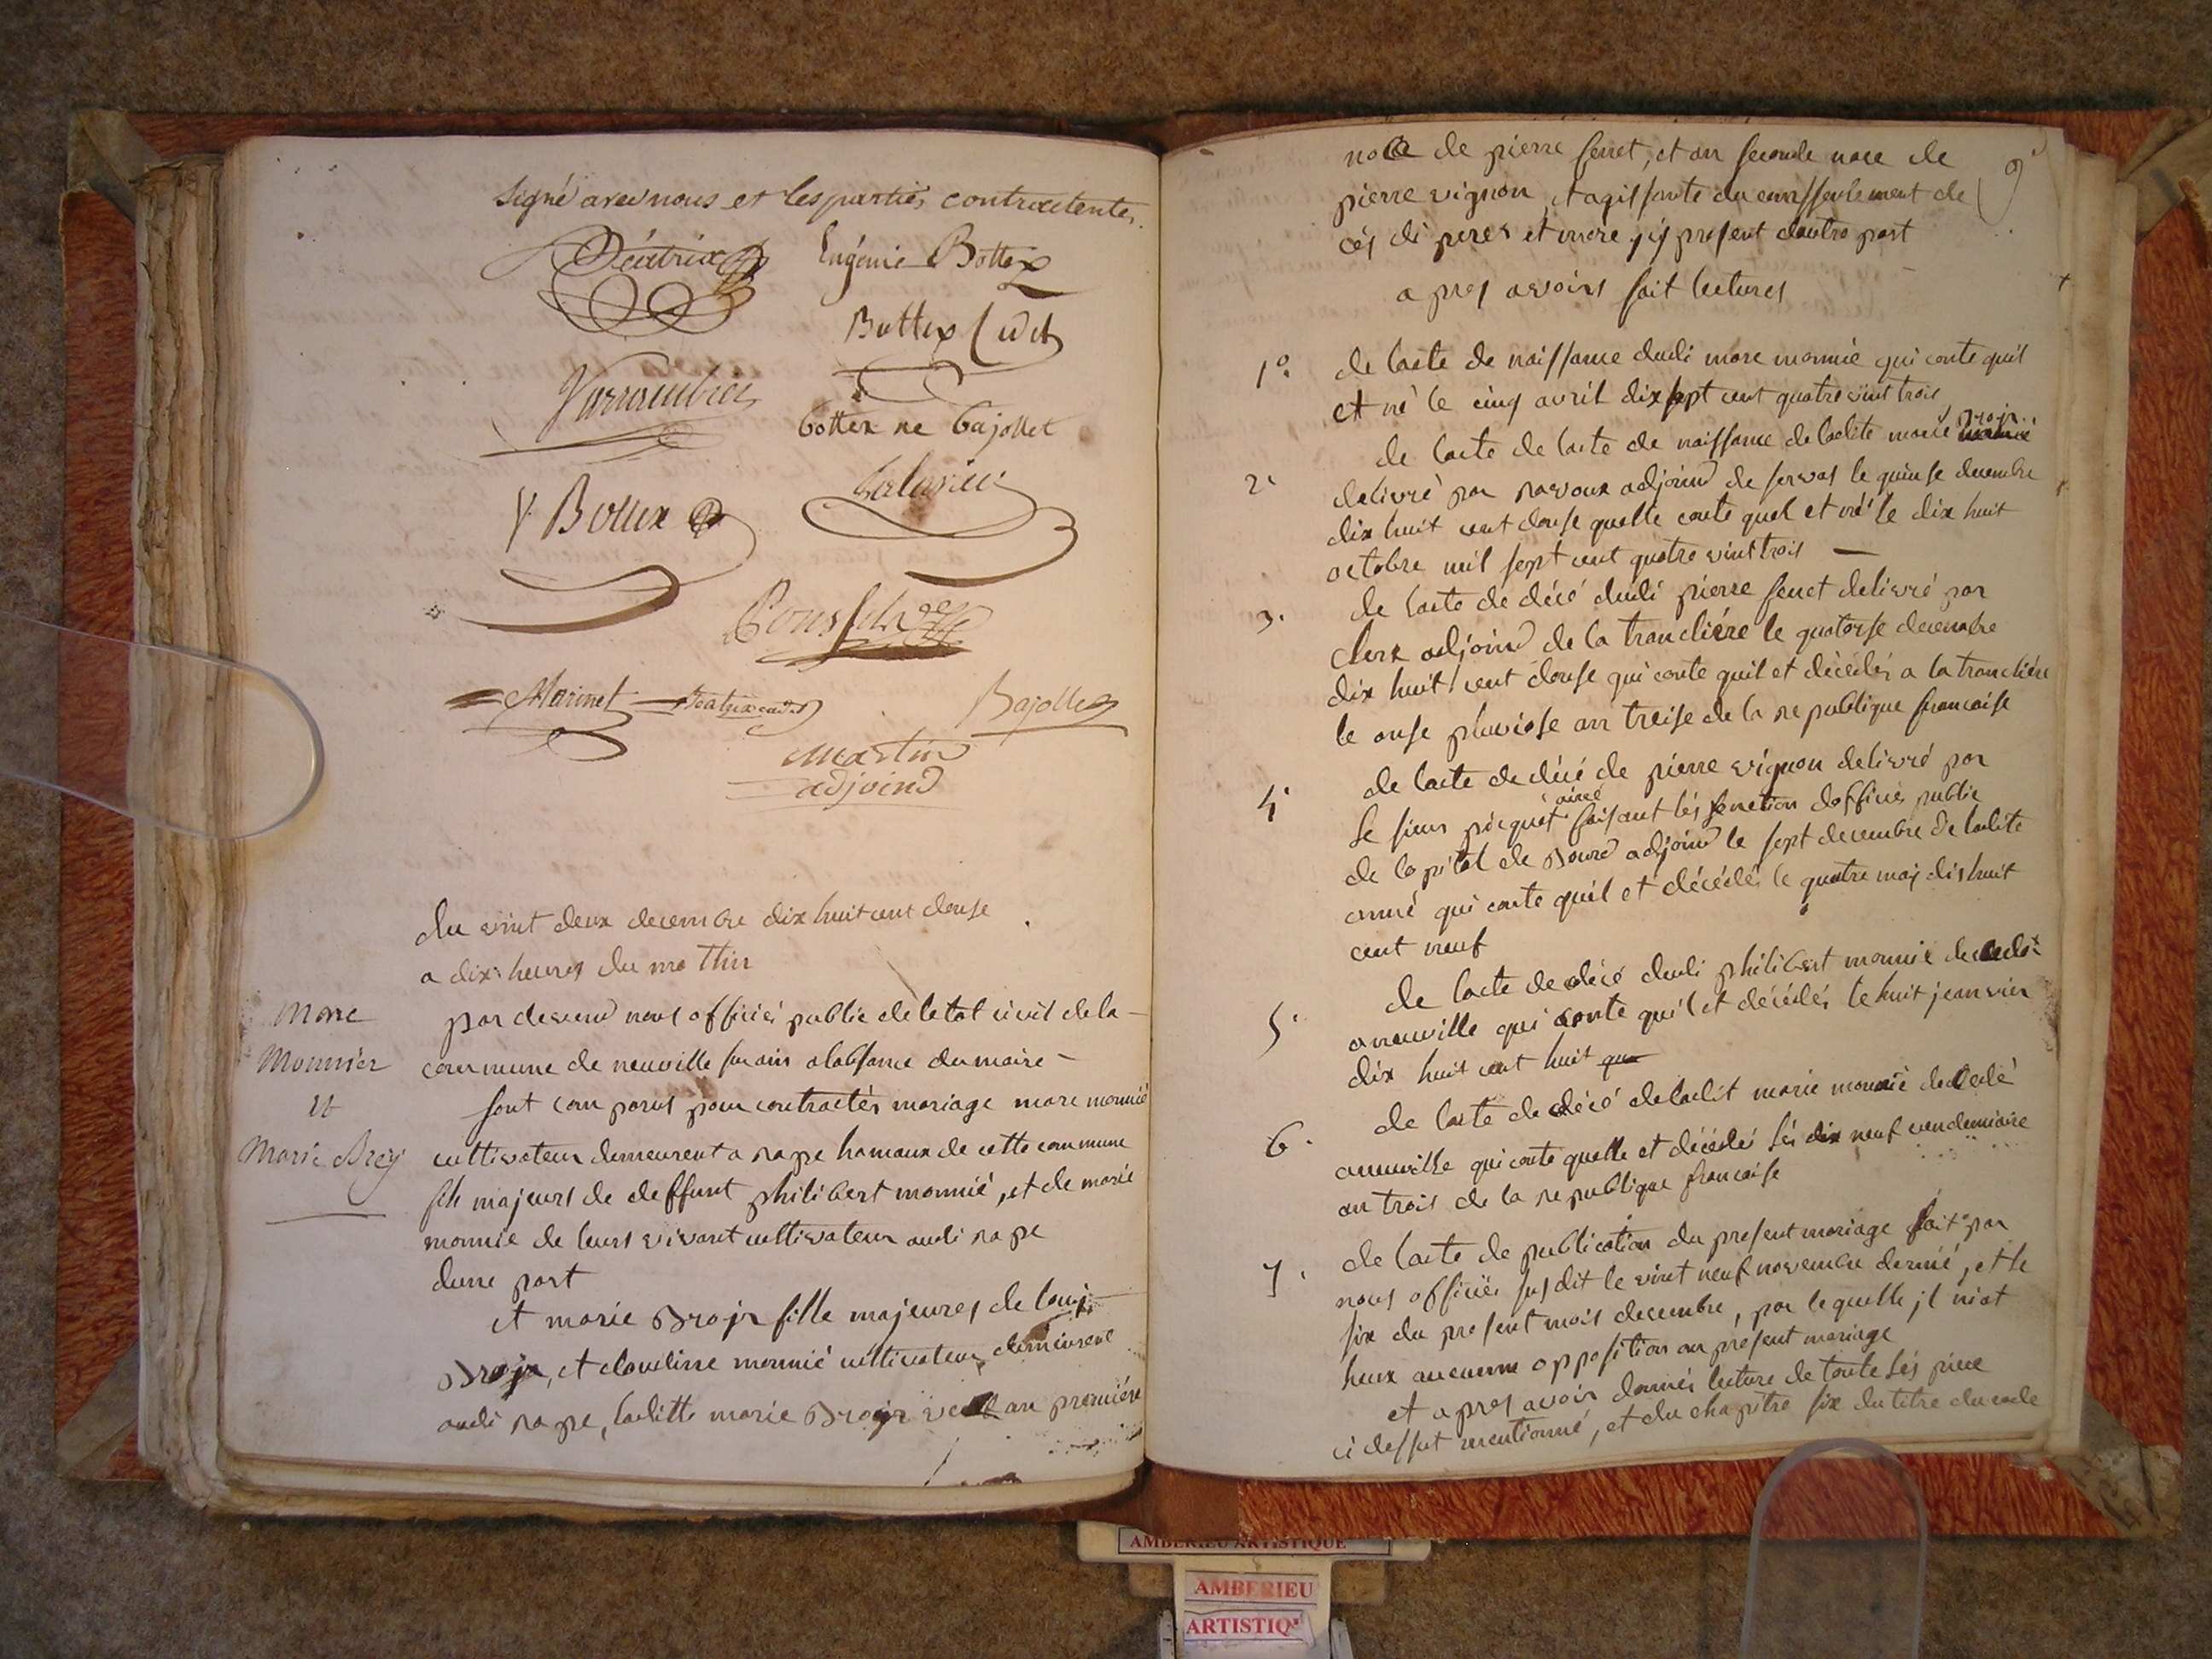 signé avec nous et les parties contractentes
Béatrix
Eugénie Bottex
Bottex Cadet
Varrambier
bottex ne bajollet
Y Bottex
Marinet
Beatrix cadet
Bajollet
Martin
adjoind
du vint deux decembre dix huit cent douse
a dix heures du mathin
Marc
Monnier
et
Marie
par devend nous officiés public de letat civil de la
commune de neuville sur ain a labsance du maire
sont comparus pour contractés mariage marc monnié
cultivateur demeurent a rape hamaux de cette commune
fils majeurs de deffunt philibert monnié, et de marie
monnie de leurs vivant cultivateur audi rape
dune part
et marie Brojr fille majeures de louis
Brojr, et claudinne monnié cultivateur demeurent
audi rape, laditte marie Brojr an premiére
9
noce de pierre feret, et an seconde noce de
pierre vignon, et agissante du conssentement de
cés di peres et mere, jcj present dautre part
apres avoirs fait lectures
1º de lacte de naissance dudi marc monnie qui conte quil
et né le cinq avril dix sept cent quatre vint trois
2º de lacte de lacte de naissance de ladite marie Brojr
delivré par ravoux adjoind de servas le quinse decembre
dix huit cent douse quelle conte quel et né le dix huit
octobre mil sept cent quatre vint trois
3. de lacte de décé dudi pierre feret delivré par
clerx adjoind de la trancliére le quatorse decembre
dix huit cent douse qui conte quil et décédés a la trancliére
le onse pluviose an treise de la republique francaise
4 de lacte de décé de pierre vignon delivré par
le sieur picquet ainée faisant lés fonction dofficiés public
de lopital de Bourd adjoind le sept decembre de ladite
anné qui conte quil et décédés le quatre maj dix huit
cent neuf
5. de lacte de décé dudi philibert monnié
a neuville qui conte quil et décédés le huit jeanvier
dix huit cent huit
6. de lacte de décé de ladit marie monnié décédé
aneuville qui conte quelle et décédés lés dix neuf vendemiaire
an trois de la republique francaise
7. de lacte de publication du present mariage fait par
nous officiés susdit le vint neuf novembre dernié, et le
six du present mois decembre, par lequelle jl niat
heux aucunne opposition au present mariage
et apres avoir donnés lecture de toute lés piece
ci dessut mentionné, et du chapitre six du titre du code
AMBERIEU ARTISTIQUE
AMBERIEU
ARTISTIQU